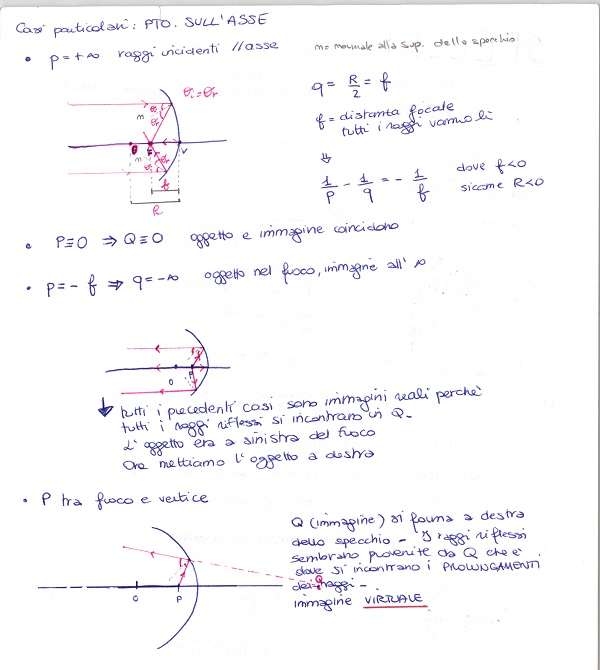 Casi particolari: PTO. SULL'ASSE
• p=+∞ raggi incidenti //asse
n= normale alla sup. dello specchio
θi=θr
q = R/2 = f
f = distanza focale
tutti i raggi vanno lì
⇓
1/p - 1/q = - 1/f dove f<0
siccome R<0
θi
n
θr
O
F
V
n
θr
θi
f
R
• P≡O ⇒ Q≡O oggetto e immagine coincidono
• p=-f ⇒ q=-∞ oggetto nel fuoco, immagine all'∞
O
F
tutti i precedenti casi sono immagini reali perchè
tutti i raggi riflessi si incontrano in Q.
L'oggetto era a sinistra del fuoco
Ora mettiamo l'oggetto a destra
• P tra fuoco e vertice
Q (immagine) si forma a destra
dello specchio - I raggi riflessi
sembrano provenire da Q che è
dove si incontrano i PROLUNGAMENTI
dei raggi -
immagine VIRTUALE
O
P
Q